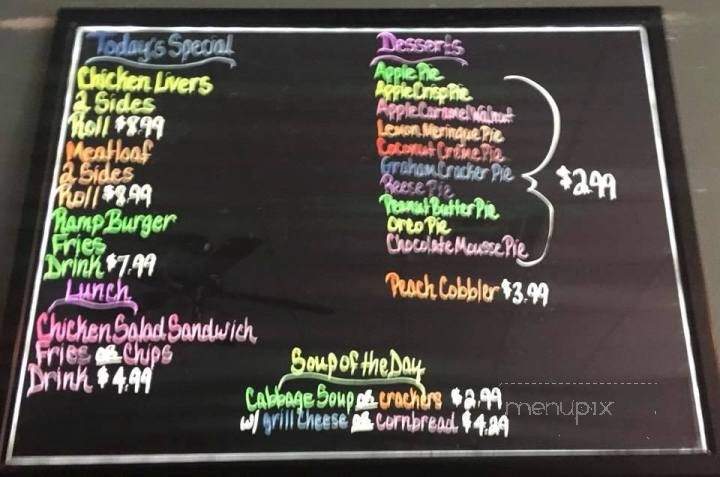 Today's Special
Chicken Livers
2 Sides
Roll $8.99
Meatloaf
2 Sides
Roll $8.99
Ramp Burger
Fries
Drink $7.99
Lunch
Chicken Salad Sandwich
Fries or Chips
Drink $4.99
Desserts
Apple Pie
Apple Crisp Pie
Apple Caramel Walnut
Lemon Meringue Pie
Coconut Créme Pie
Graham Cracker Pie
Reese Pie
Peanut Butter Pie
Oreo Pie
Chocolate Mousse Pie
$2.99
Peach Cobbler $3.99
Soup of the Day
Cabbage Soup or crackers $2.99
w/ grill cheese or Cornbread $4.29
menupix